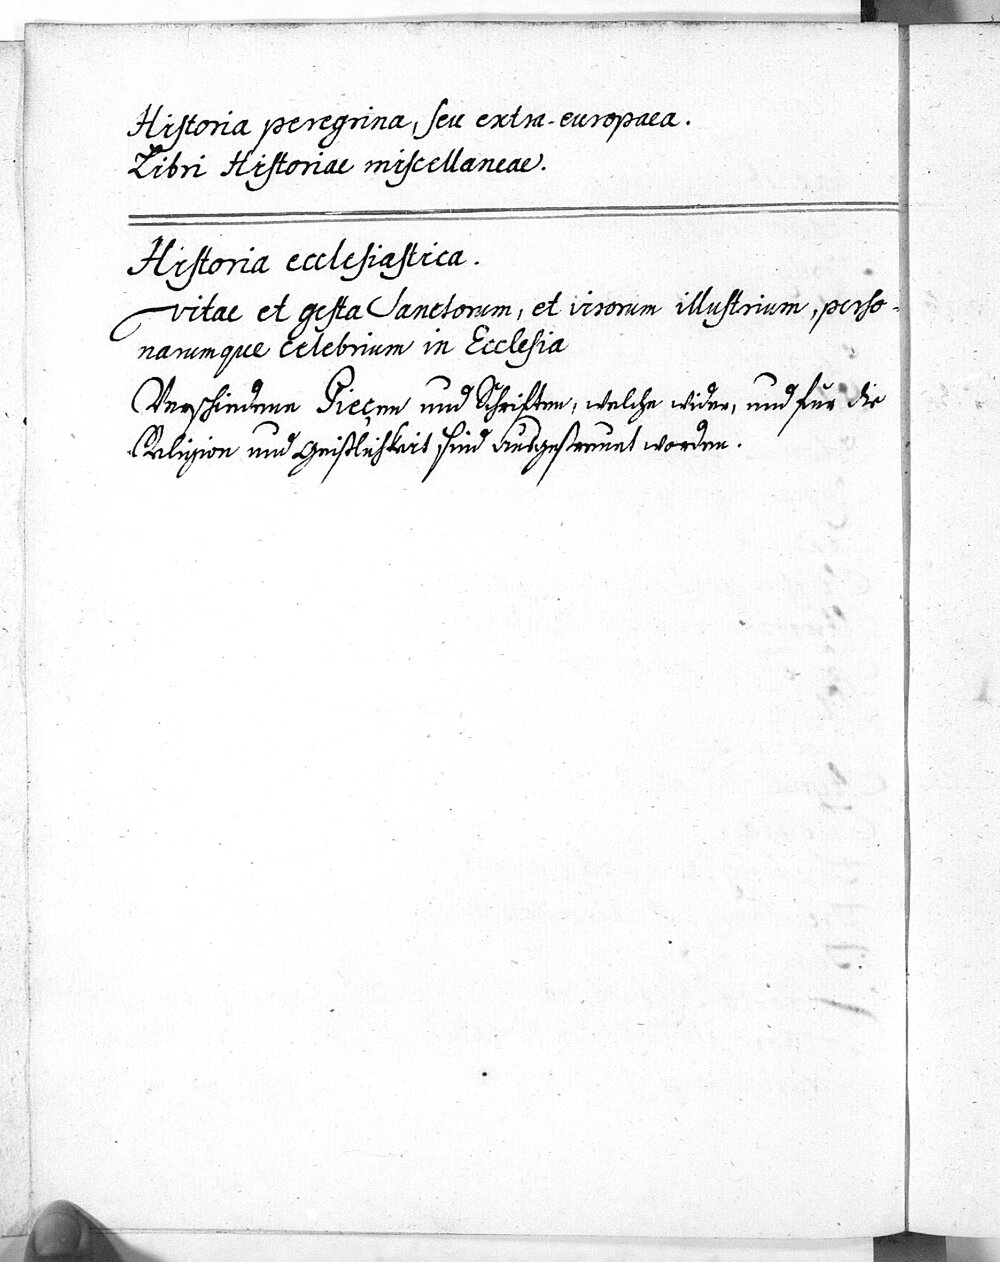 Historia peregrina, seu extra-europaea.
Libri Historiae miscellaneae.
Historia ecclesiastica.
Vitae et gesta Sanctorum, et virorum illustrium, perso-
narumque celebrium in Ecclesia
Verschiedene Piecen und Schriften, welche wider, und für die
Religion und Geistlichkeit sind ausgestreuet worden.